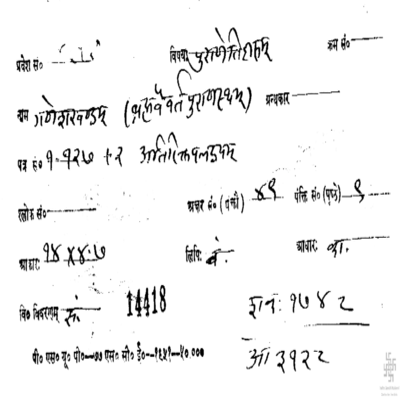 प्रवेश सं० विषयः पुराणेतिहासम् क्रम सं०
नाम गणेशखण्डम् (ब्रह्मवैवर्तपुराणस्थम्) ग्रन्थकार
पत्र सं० १-१२७ + २ अतिरिक्तपत्रद्वयम्
श्लोक सं० अक्षर सं० (पङ्क्तौ) ४९ पंक्ति सं० (पृष्ठे) ९
आकारः १४ X ४.७ लिपिः वं. आधारः का.
वि० विवरणम् सं. 14418 ज्ञान: १७४८
पी० एस० यू० पी०--७७ एस० सी० ई०--१९५१--५० ००० आ ३१२८